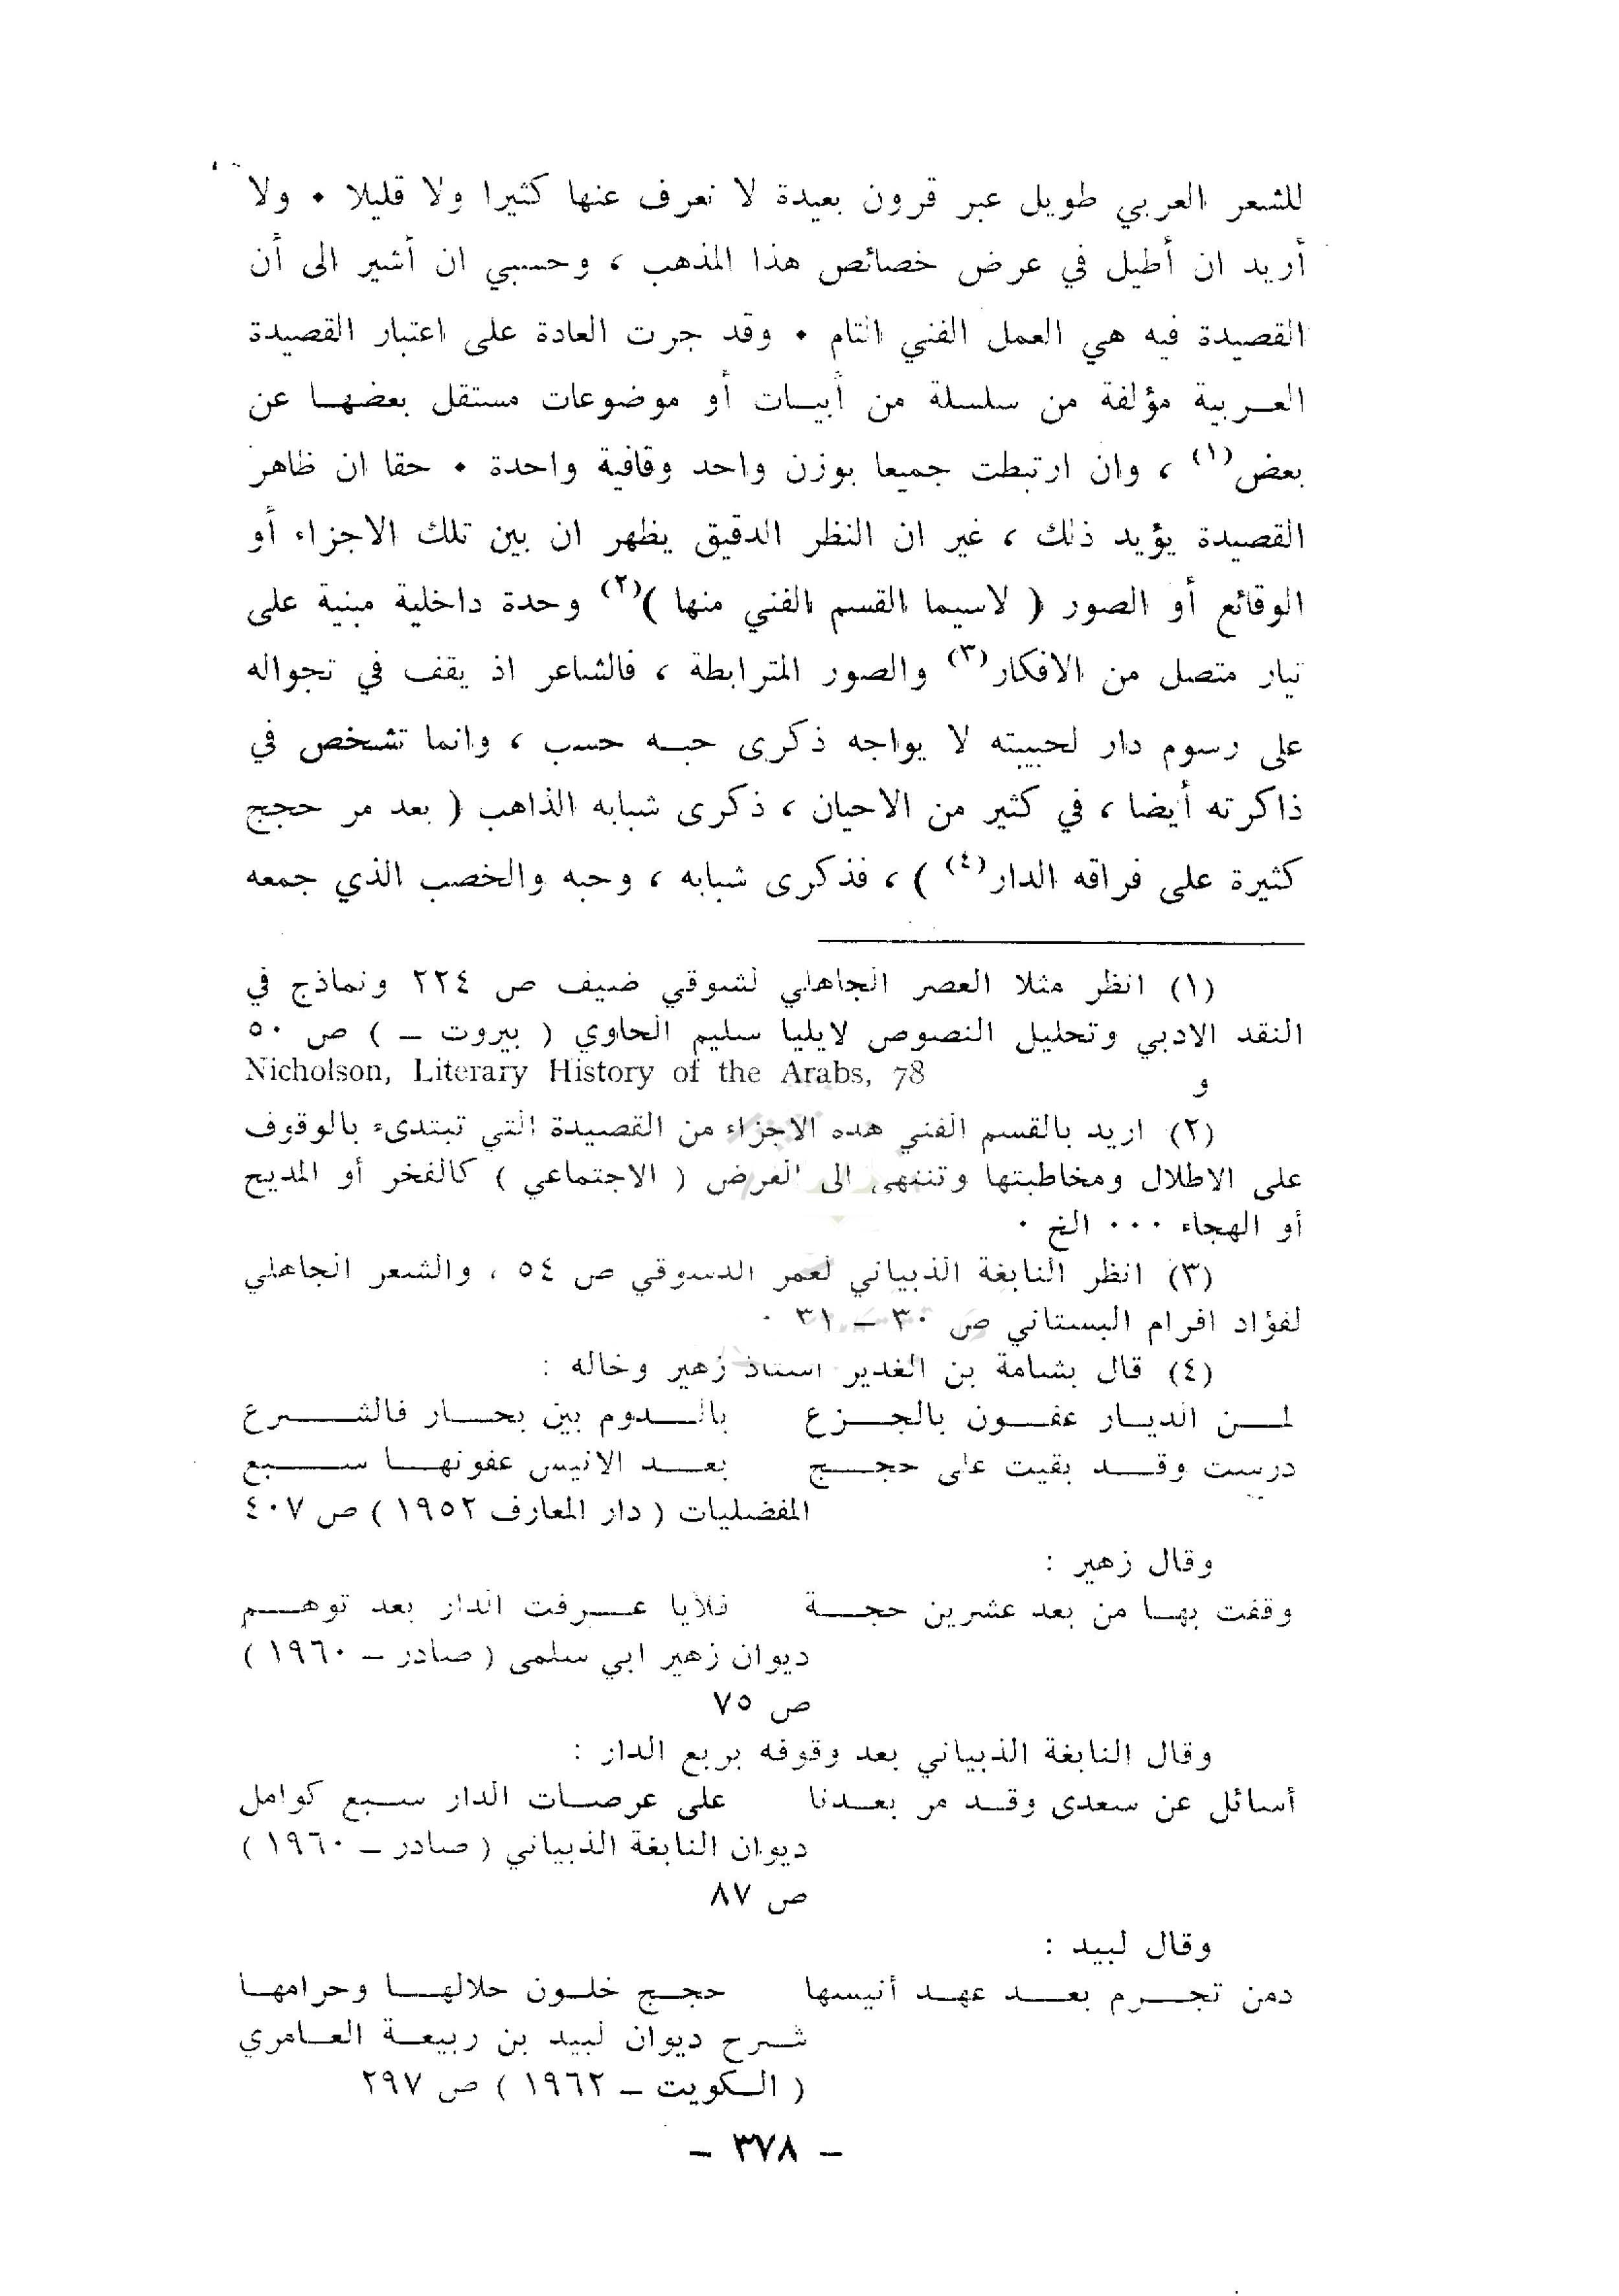 للشعر العربي طويل عبر قرون بعيدة لا نعرف عنها كثيرا ولا قليلا ٠ ولا
أريد ان أطيل في عرض خصائص هذا المذهب ، وحسبي ان أشير الى أن
القصيدة فيه هي العمل الفني التام ٠ وقد جرت العادة على اعتبار القصيدة
العربية مؤلفة من سلسلة من أبيات أو موضوعات مستقل بعضها عن
بعض(١) ، وان ارتبطت جميعا بوزن واحد وقافية واحدة ٠ حقا ان ظاهر
القصيدة يؤيد ذلك ، غير ان النظر الدقيق يظهر ان بين تلك الاجزاء أو
الوقائع أو الصور ( لاسيما القسم الفني منها )(٢) وحدة داخلية مبنية على
تيار متصل من الافكار(٣) والصور المترابطة ، فالشاعر اذ يقف في تجواله
على رسوم دار لحبيبته لا يواجه ذكرى حبه حسب ، وانما تشخص في
ذاكرته أيضا ، في كثير من الاحيان ، ذكرى شبابه الذاهب ( بعد مر حجج
كثيرة على فراقه الدار(٤) ) ، فذكرى شبابه ، وحبه والخصب الذي جمعه
(١) انظر مثلا العصر الجاهلي لشوقي ضيف ص ٢٢٤ ونماذج في
النقد الادبي وتحليل النصوص لايليا سليم الحاوي ( بيروت ـ ) ص ٥٠
و Nicholson, Literary History of the Arabs, 78
(٢) اريد بالقسم الفني هذه الاجزاء من القصيدة التي تبتدىء بالوقوف
على الاطلال ومخاطبتها وتنتهي الى الغرض ( الاجتماعي ) كالفخر أو المديح
أو الهجاء ٠٠٠ الخ ٠
(٣) انظر النابغة الذبياني لعمر الدسوقي ص ٥٤ ، والشعر الجاهلي
لفؤاد افرام البستاني ص ٣٠ ـ ٣١ ٠
(٤) قال بشامة بن الغدير استاذ زهير وخاله :
لمن الديار عفون بالجزع بالدوم بين بحار فالشرع
درست وقد بقيت على حجج بعد الانيس عفونها سبع
المفضليات ( دار المعارف ١٩٥٢ ) ص ٤٠٧
وقال زهير :
وقفت بها من بعد عشرين حجة فلأيا عرفت الدار بعد توهم
ديوان زهير ابي سلمى ( صادر ـ ١٩٦٠ )
ص ٧٥
وقال النابغة الذبياني بعد وقوفه بربع الدار :
أسائل عن سعدى وقد مر بعدنا على عرصات الدار سبع كوامل
ديوان النابغة الذبياني ( صادر ـ ١٩٦٠ )
ص ٨٧
وقال لبيد :
دمن تجرم بعد عهد أنيسها حجج خلون حلالها وحرامها
شرح ديوان لبيد بن ربيعة العامري
( الكويت ـ ١٩٦٢ ) ص ٢٩٧
ـ ٣٧٨ ـ